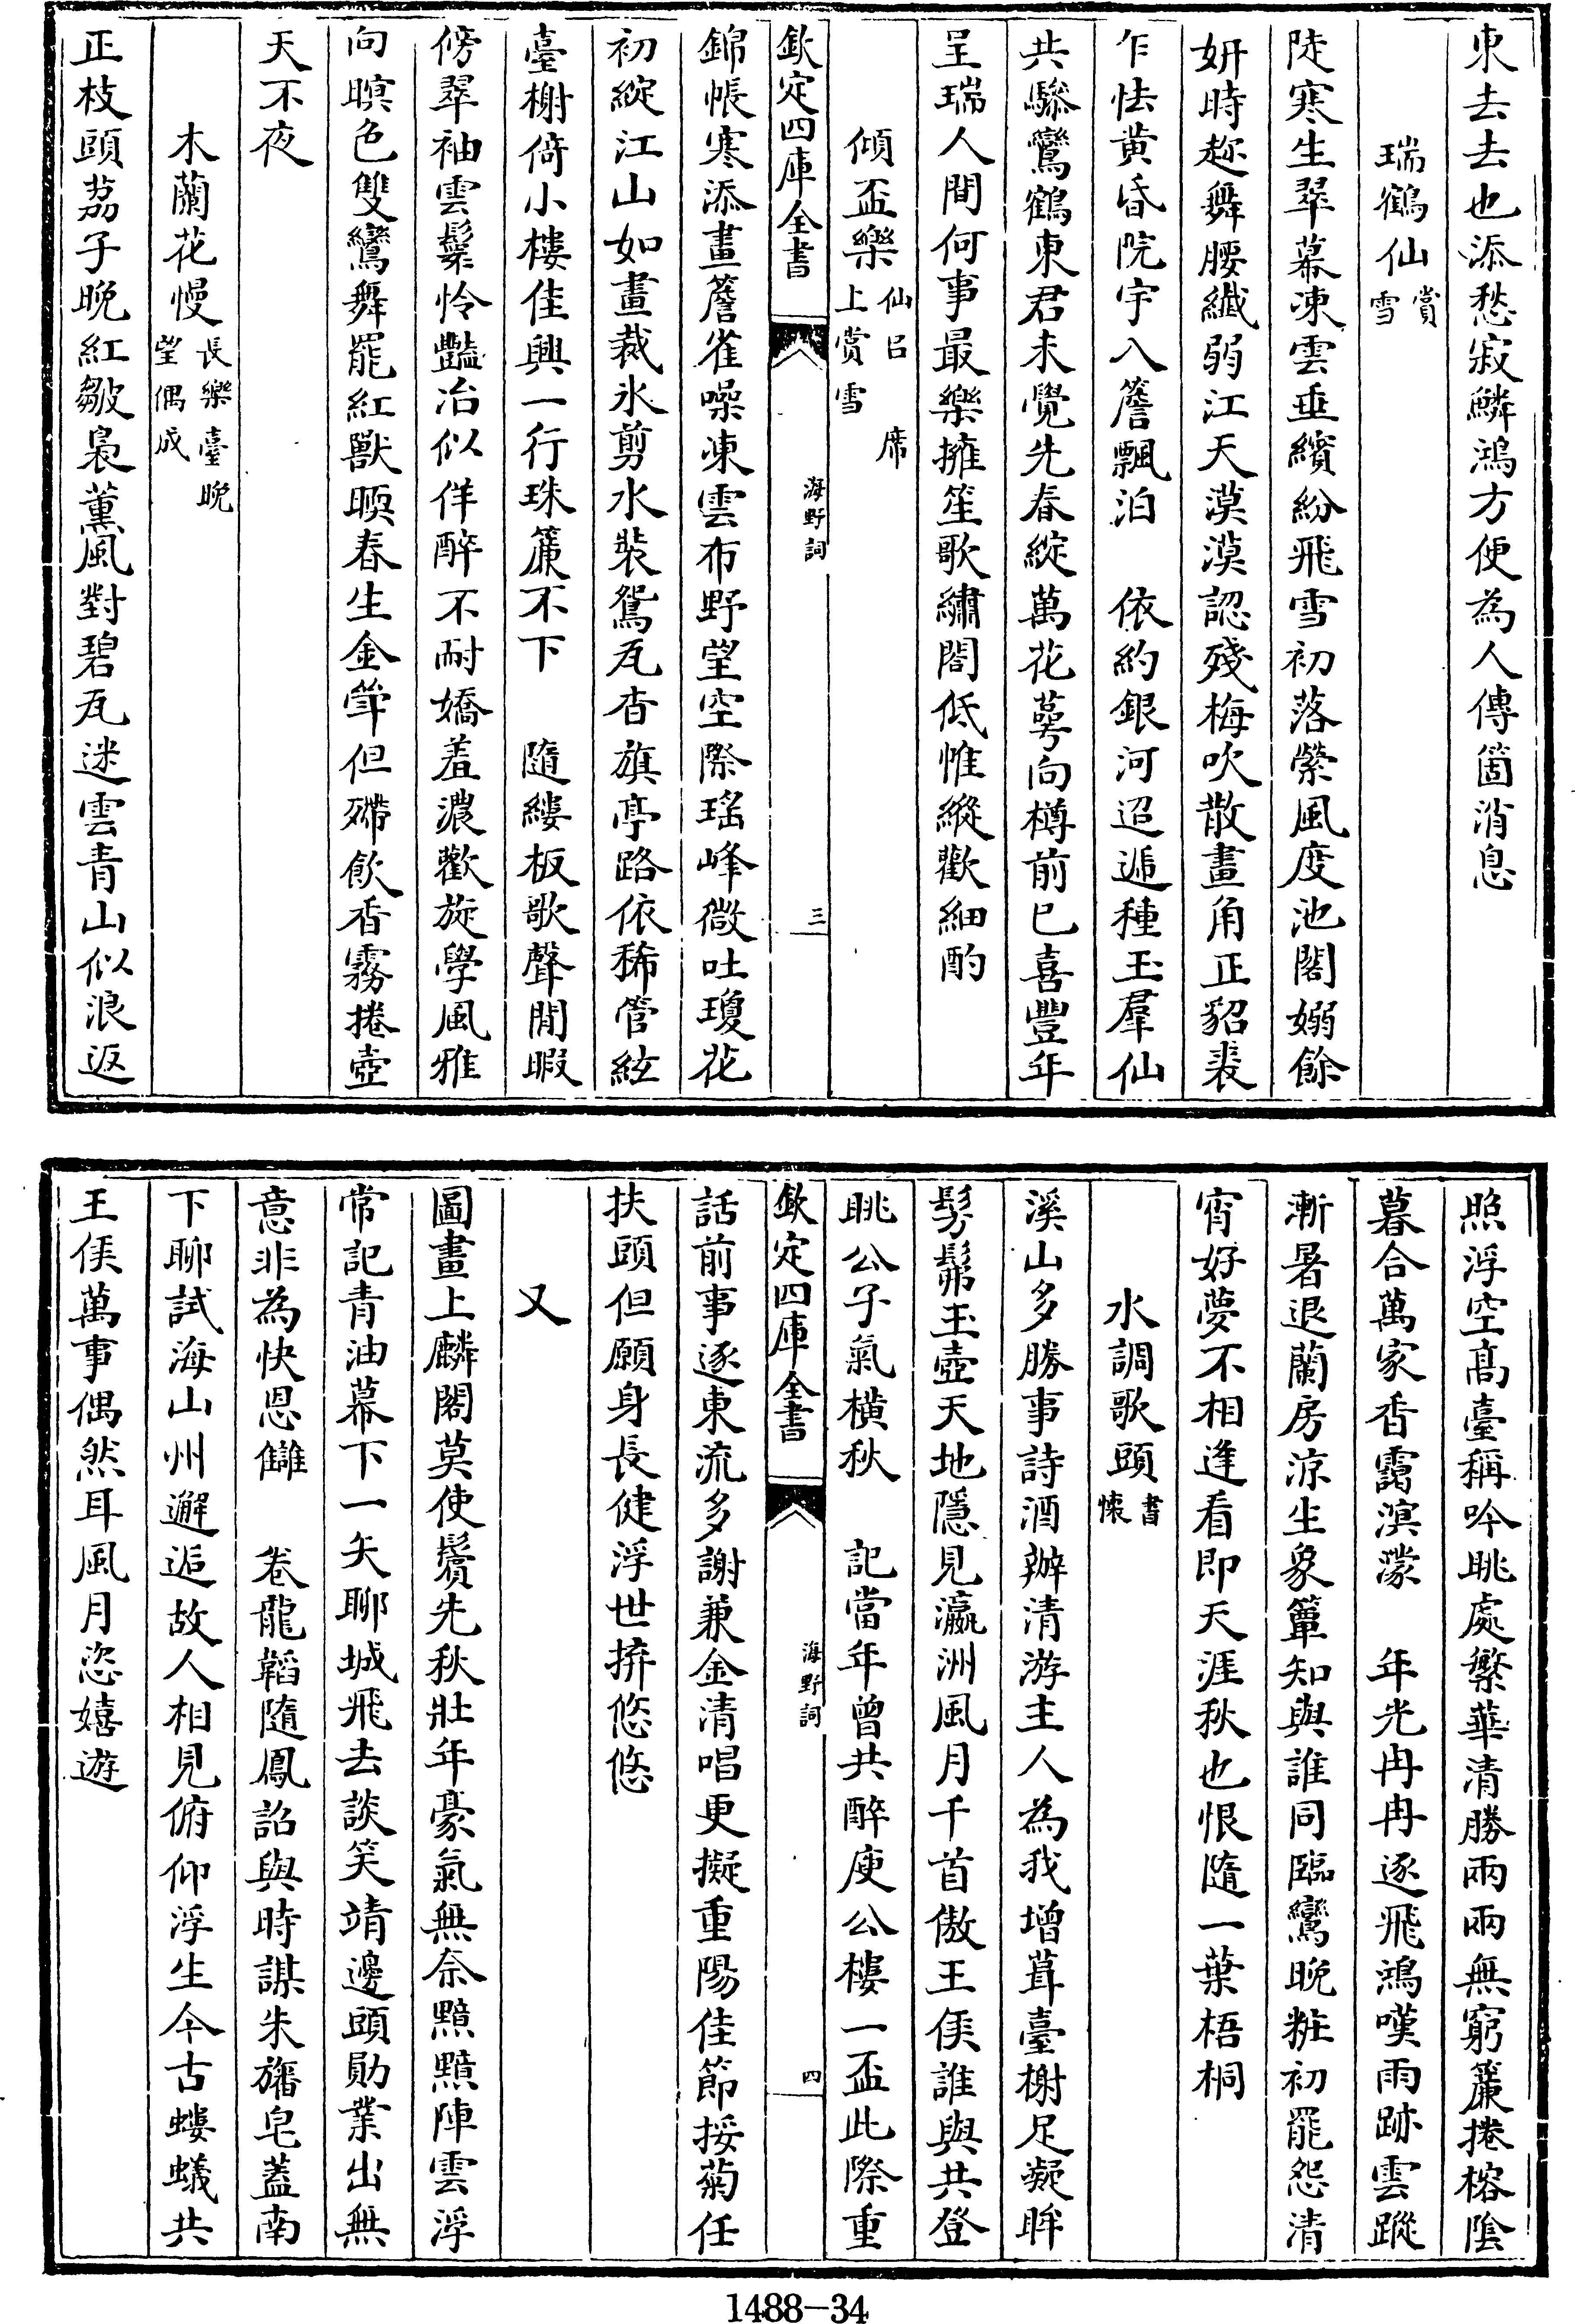 東去去也添愁寂鱗鴻方便為人傳箇消息
瑞鶴仙賞雪
陡寒生翠幕凍雲垂繽紛飛雪初落縈風度池閣嫋餘
妍時趂舞腰纖弱江天漠漠認殘梅吹散畫角正貂裘
乍怯黄昏院宇入簷飄泊　依約銀河迢遞種玉羣仙
共驂鸞鶴東君未覺先春綻萬花萼向樽前已喜豐年
呈瑞人間何事最樂擁笙歌繡閣低帷縱歡細酌
傾盃樂仙呂　席上賞雪
欽定四庫全書
海野詞
三
錦帳寒添畫簷雀噪凍雲布野望空際瑶峰微吐瓊花
初綻江山如畫裁氷剪水裝鴛瓦杳旗亭路依稀管絃
臺榭倚小樓佳興一行珠簾不下　隨縷板歌聲閒暇
傍翠袖雲鬟怜豔冶似佯醉不耐嬌羞濃歡旋學風雅
向暝色雙鸞舞罷紅獸暎春生金斝但殢飲香霧捲壺
天不夜
木蘭花慢長樂臺晚望偶成
正枝頭荔子晚紅皺裊薰風對碧瓦迷雲青山似浪返
照浮空髙臺稱吟眺處繁華清勝兩兩無窮簾捲榕陰
暮合萬家香靄溟濛　年光冉冉逐飛鴻嘆雨跡雲蹤
漸暑退蘭房涼生象簟知與誰同臨鸞晚粧初罷怨清
宵好夢不相逢看即天涯秋也恨隨一葉梧桐
水調歌頭書懷
溪山多勝事詩酒辦清游主人為我增葺臺榭足凝眸
髣髴玉壺天地隱見瀛洲風月千首傲王侯誰與共登
眺公子氣橫秋　記當年曾共醉庾公樓一盃此際重
欽定四庫全書
海野詞
四
話前事逐東流多謝兼金清唱更擬重陽佳節挼菊任
扶頭但願身長健浮世拚悠悠
又
圖畫上麟閣莫使鬢先秋壯年豪氣無奈黯黯陣雲浮
常記青油幕下一矢聊城飛去談笑靖邊頭勛業出無
意非為快恩讎　卷龍韜隨鳳詔與時謀朱旛皂蓋南
下聊試海山州邂逅故人相見俯仰浮生今古螻蟻共
王侯萬事偶然耳風月恣嬉遊
1488-34